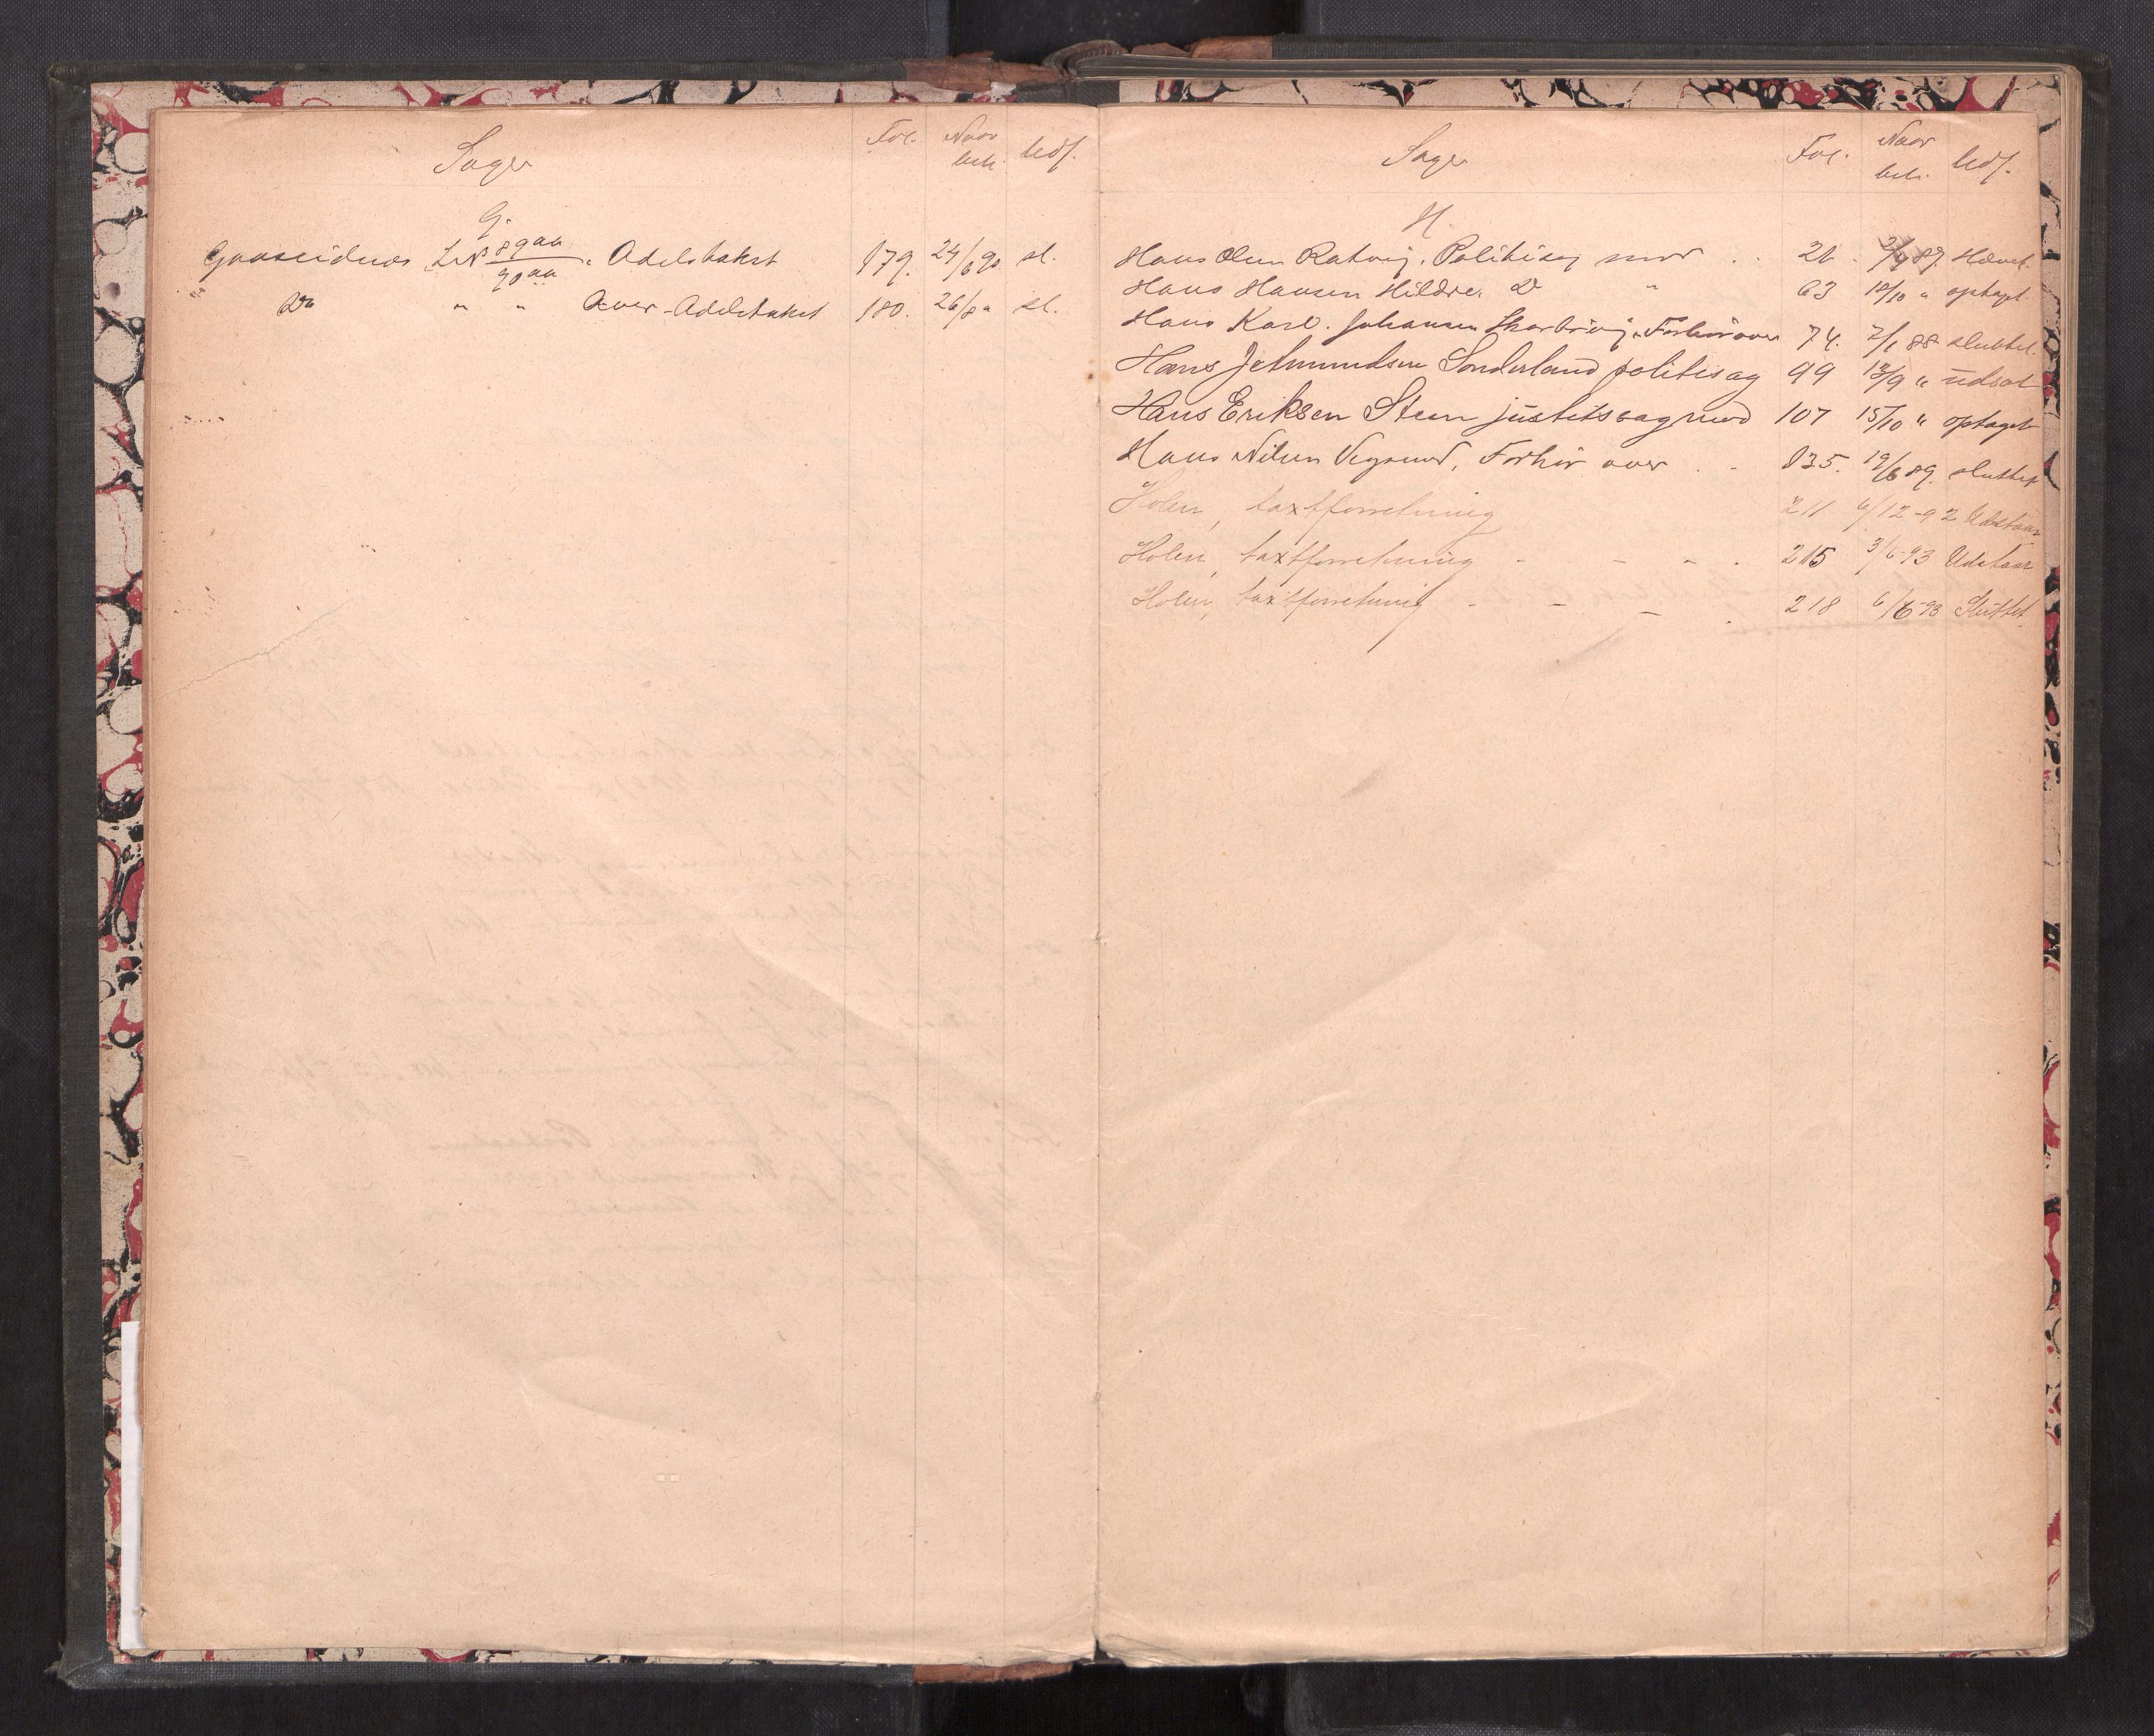 Sager
Fol.
Naar beh.
Udf.
G.
Gaaseidnes LN 89aa/90aa. Odelstakst 179. 24/6 90. sl.
Do " " Over-Odelstakst 180. 26/8 " sl.
Sager
Fol.
Naar beh.
Udf.
H.
Hans Olsen Ratvig. Politisag mod . . 21 . 2/9 87. Hævet.
Hans Hansen Hildre. Do " 63 18/10 " optaget.
Hans Karl. Johansen Forhør over 74. 2/1 88 sluttet.
Hans Jetmundsen Sonderland politisag 99 18/9 " udsat
Hans Eriksen Steen justitssag mod 107 15/10 " optaget
Hans Nilsen Vegsund, Forhør over . . 135. 19/6 89. sluttet
Holen, taxtforretning 211 6/12-92 Udstaar
Holen, taxtforretning - - - . 215 3/6-93 Udstaar
Holen, taxtforretning - - - . 218 6/6-93 Sluttet.